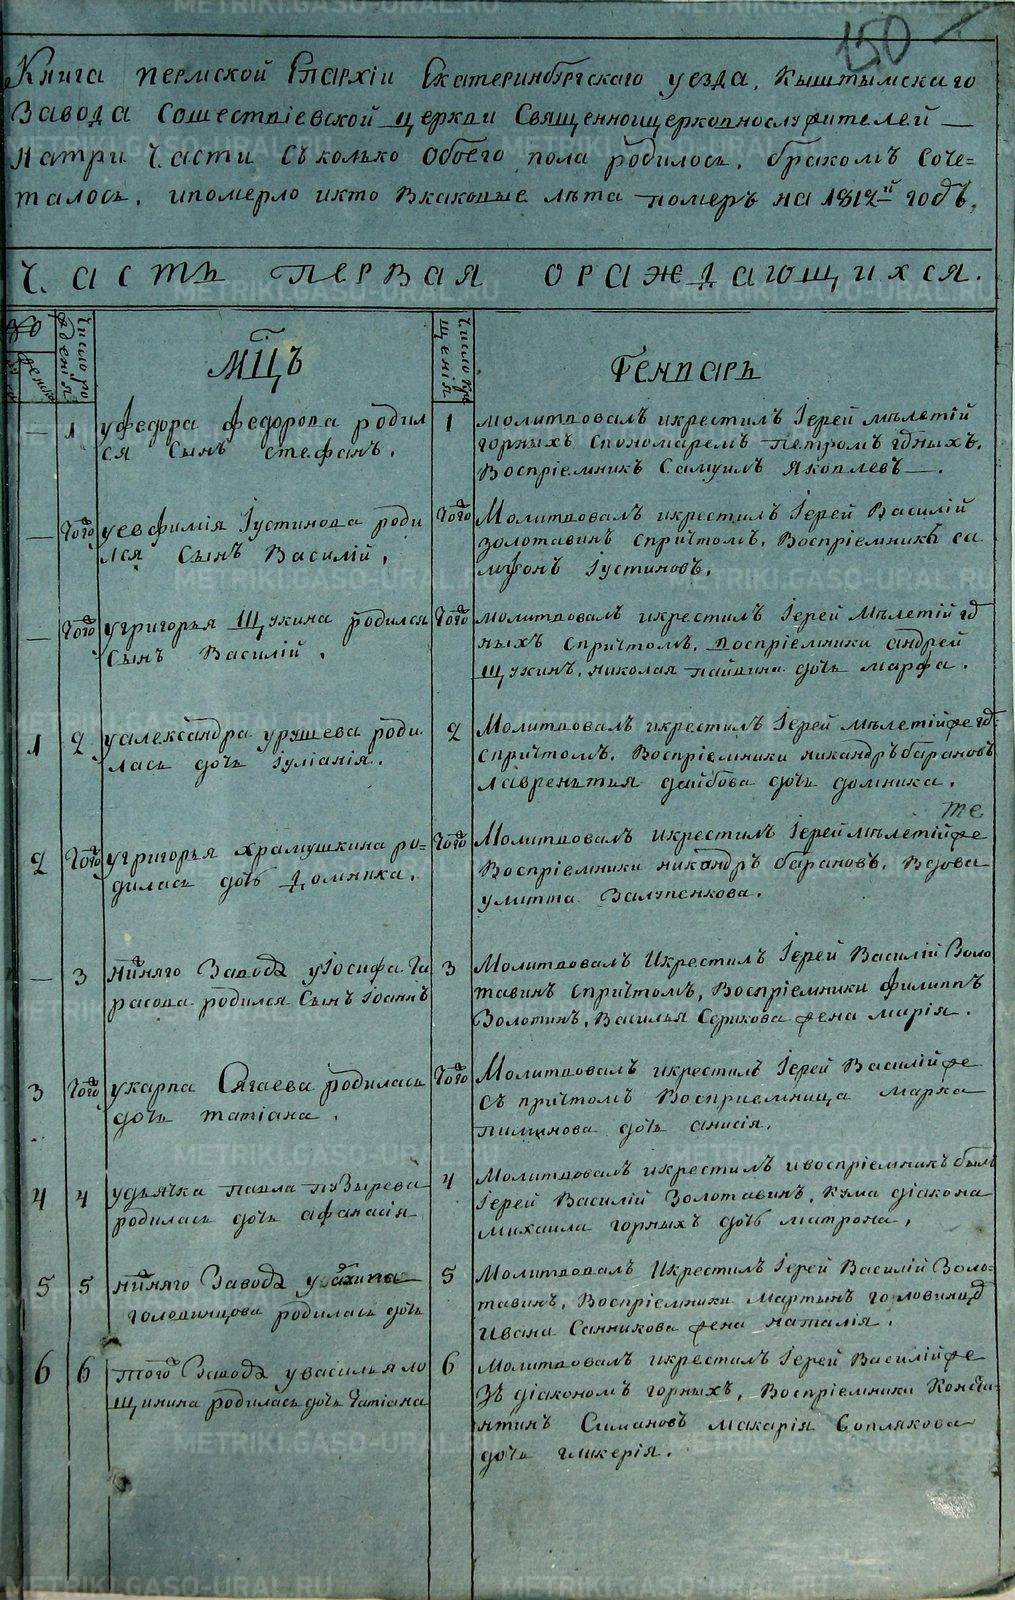 150
Книга пермской Епархіи Екатеринбургскаго уезда, Кыштымскаго
Завода Сошествіевской церкви Священноицерковнослужителей
Натри Части Сколько обоего пола родилось, бракомъ Соче=
талось, ипомерло икто Вкаковые лѣта померъ на 1812й годъ,
Часть первая ораждающихся.
Число ро
жденія
Мцъ
Число кре
щенія
Генваръ
— 1 уфедора федорова родил
ся Сынъ стефанъ.
1 молитвовалъ икрестилъ Іерей мѣлетій
горныхъ Спономаремъ петромъ гдныхъ.
Воспріемникъ Самуилъ Яковлевъ —.
— Того уевфимія Іустинова роди
лся Сынъ Василій,
Того Молитвовалъ икрестилъ Іерей Василій
золотавинъ спричтомъ, Воспріемникъ са
мсонъ Іустиновъ.
— Того угригорья Щукина родился
Сынъ Василій.
Того молитвовалъ икрестилъ Іерей Мѣлетій гд
ныхъ Спричтомъ, воспріемники андрей
Щукинъ, николая пайвина дочь марфа.
1 2 уалександра урушева роди
лась дочь Іуліанія.
2 Молитвовалъ икрестилъ Іерей мѣлетійже гд
Спричтомъ. Воспріемники никандръ барановъ
лаврентья дайбова дочь домника.
2 Того угригорья храмушкина ро=
дилась дочь Домника.
Того Молитвовалъ икрестилъ Іерей мѣлетійже
те
Воспріемники никандръ барановъ. Вдова
улитта Валупенкова.
— 3 нижняго Завода уІосифа Та
расова родился Сынъ Іоаннъ
3 Молитвовалъ Икрестилъ Іерей Василій Золо
тавинъ Спричтомъ, Воспріемники филиппъ
Золотинъ, Василья Серикова жена марія.
3 Того укарпа Сягаева родилась
дочь татіана.
Того Молитвовалъ икрестилъ Іерей Василійже
Съ причтомъ Воспріемница марка
пиминова дочь анисія.
4 4 удьячка павла пузырева
родилась дочь афанасія
4 Молитвовалъ икрестилъ ивоспріемникъ былъ
Іерей Василій Золотавинъ, кума діакона
михаила горныхъ дочь матрона,
5 5 нижняго Завода уархипа
головинцова родилась дочь
5 Молитвовалъ Икрестилъ Іерей Василій Золо=
тавинъ, Воспріемники Мартынъ головинцд
Ивана Санникова жена наталія.
6 6 того Завода увасилья ло
щинина родилась дочь татіана
6 молитвовалъ икрестилъ Іерей Василійже
Зъ діакономъ горныхъ, Воспріемники Конста
нтинъ Симановъ макарія Соплякова
дочь гликерія.
METRIKI.GASO-URAL.RU